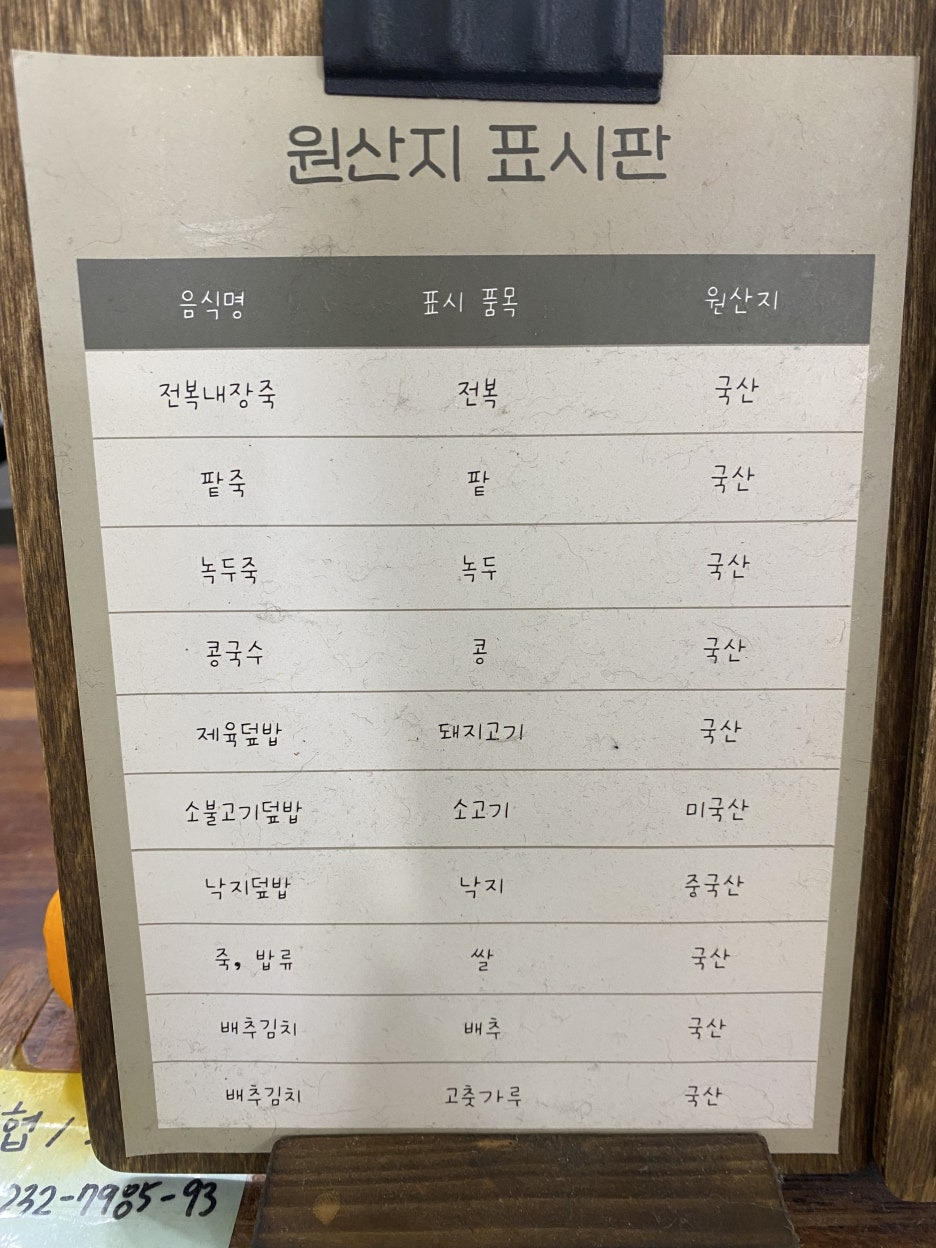 원산지 표시판
음식명 표시 품목 원산지
전복내장죽 전복 국산
팥죽 팥 국산
녹두죽 녹두 국산
콩국수 콩 국산
제육덮밥 돼지고기 국산
소불고기덮밥 소고기 미국산
낙지덮밥 낙지 중국산
죽, 밥류 쌀 국산
배추김치 배추 국산
배추김치 고춧가루 국산
협 /
232-7985-93